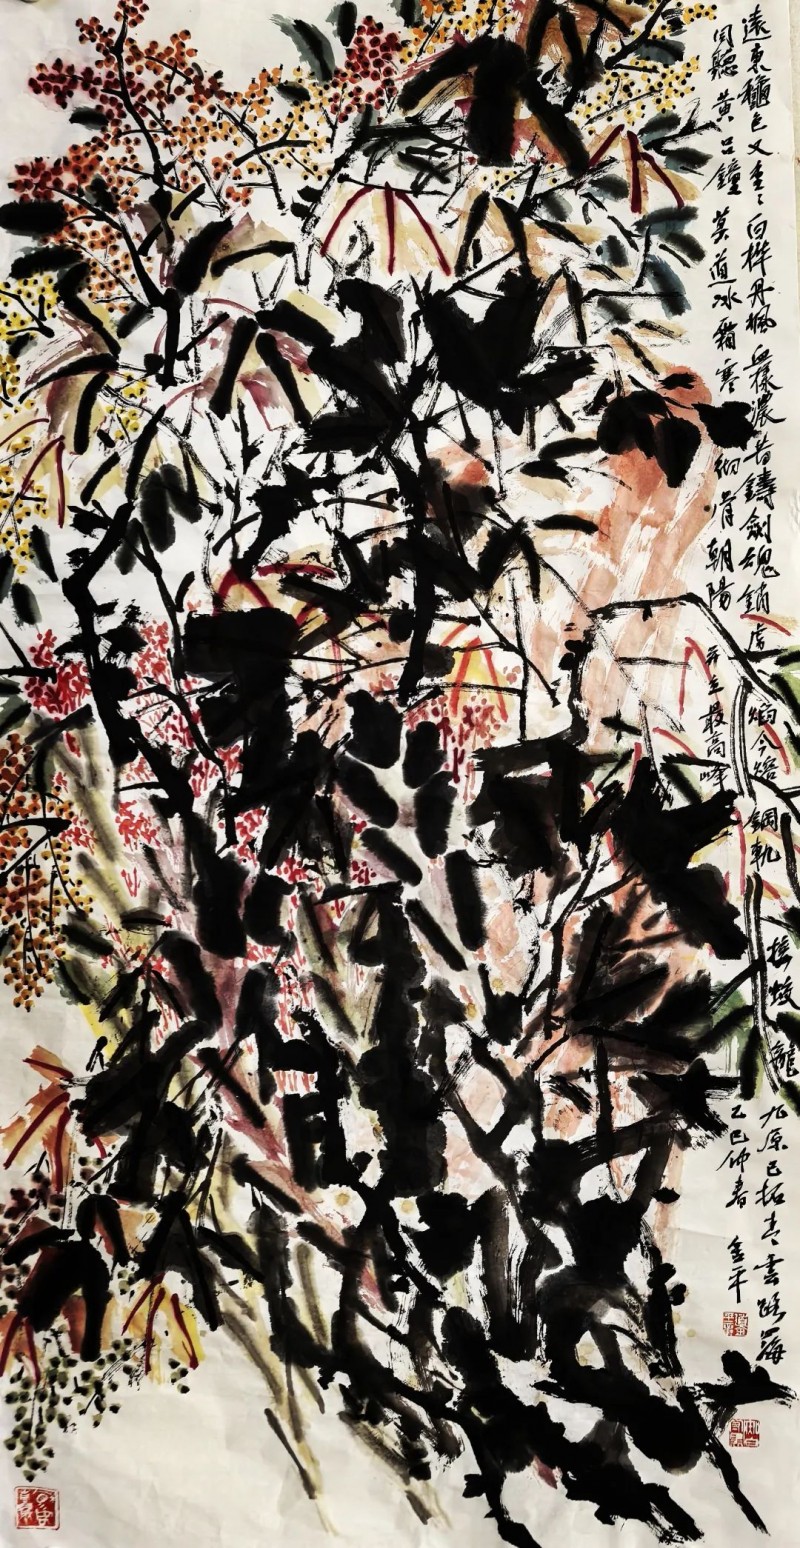 遠東穐色又重〻白樺丹楓血樣濃昔鑄劍魂銷虜焰今熔鋼軌接蛟龍九原已拓青雲路四海
同聽黃呂鐘莫道冰霜寒徹骨朝陽昇至最高峰
乙巳仲春金平